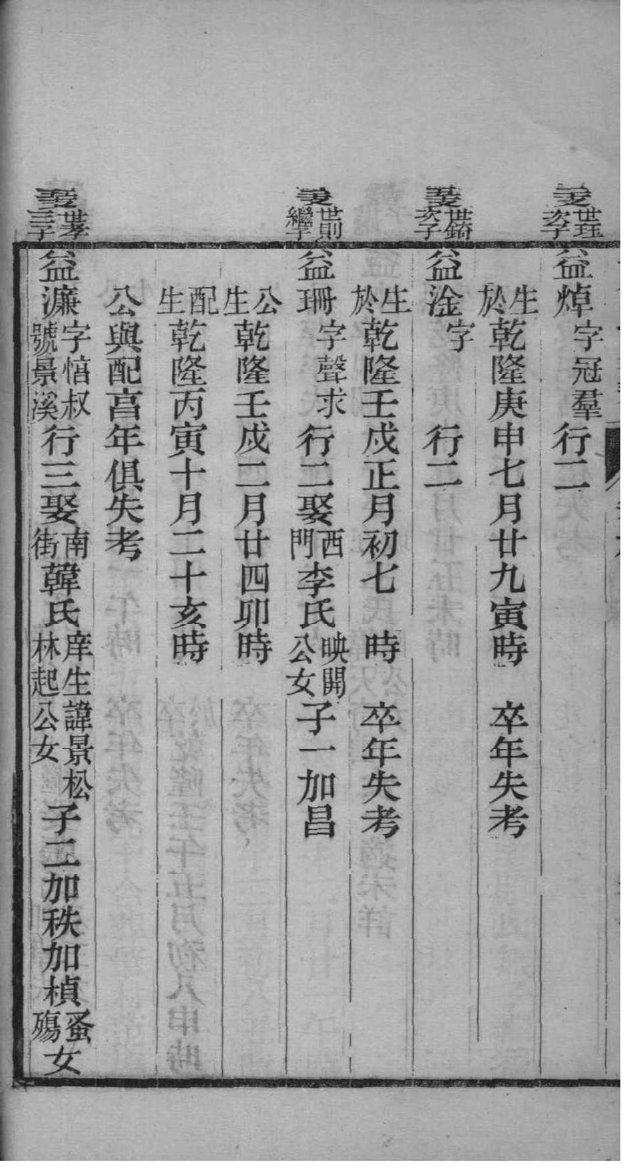 世珏次子
益焯字冠羣行二
生於乾隆庚申七月廿九寅時 卒年失考
世錡次子
益淦字 行二
生於乾隆壬戌正月初七 時 卒年失考
世則繼子
益珊字聲求行二娶西門李氏映開公女子一加昌
公生乾隆壬戌二月廿四卯時
配生乾隆丙寅十月二十亥時
公與配亯年俱失考
世孝三子
益濂字愔叔號景溪行三娶南街韓氏庠生諱景松林起公女子二加秩加楨蚤殤女